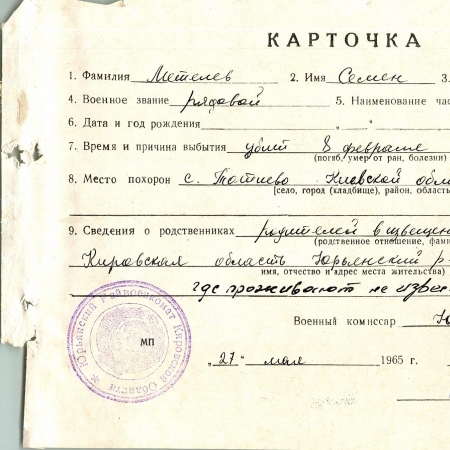 КАРТОЧКА
1. Фамилия Метелев 2. Имя Семен 3.
4. Военное звание рядовой 5. Наименование час
6. Дата и год рождения " "
7. Время и причина выбытия убит 8 февраля
(погиб, умер от ран, болезни)
8. Место похорон с. Тотиево Киевской обл
[село, город (кладбище), район, область
9. Сведения о родственниках родителей в извещен
(родственное отношение, фами
Кировская область Юрьянский р-
имя, отчество и адрес места жительства)
где проживают не извес
Юрьянский Райвоенкомат Кировской Области
МП
Военный комиссар
"27" мая 1965 г.